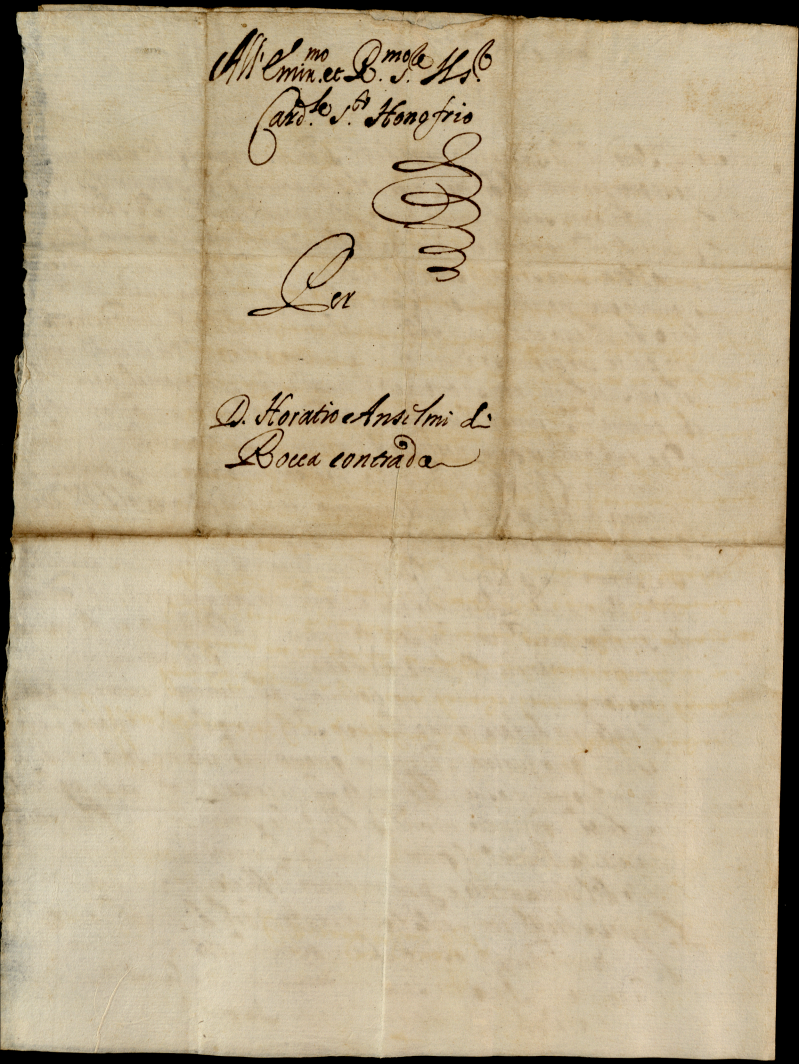 All' Emin.mo et R.mo S.re
Card.le S.to Honofrio
Per
D. Horatio Anselmi di
Rocca contrada